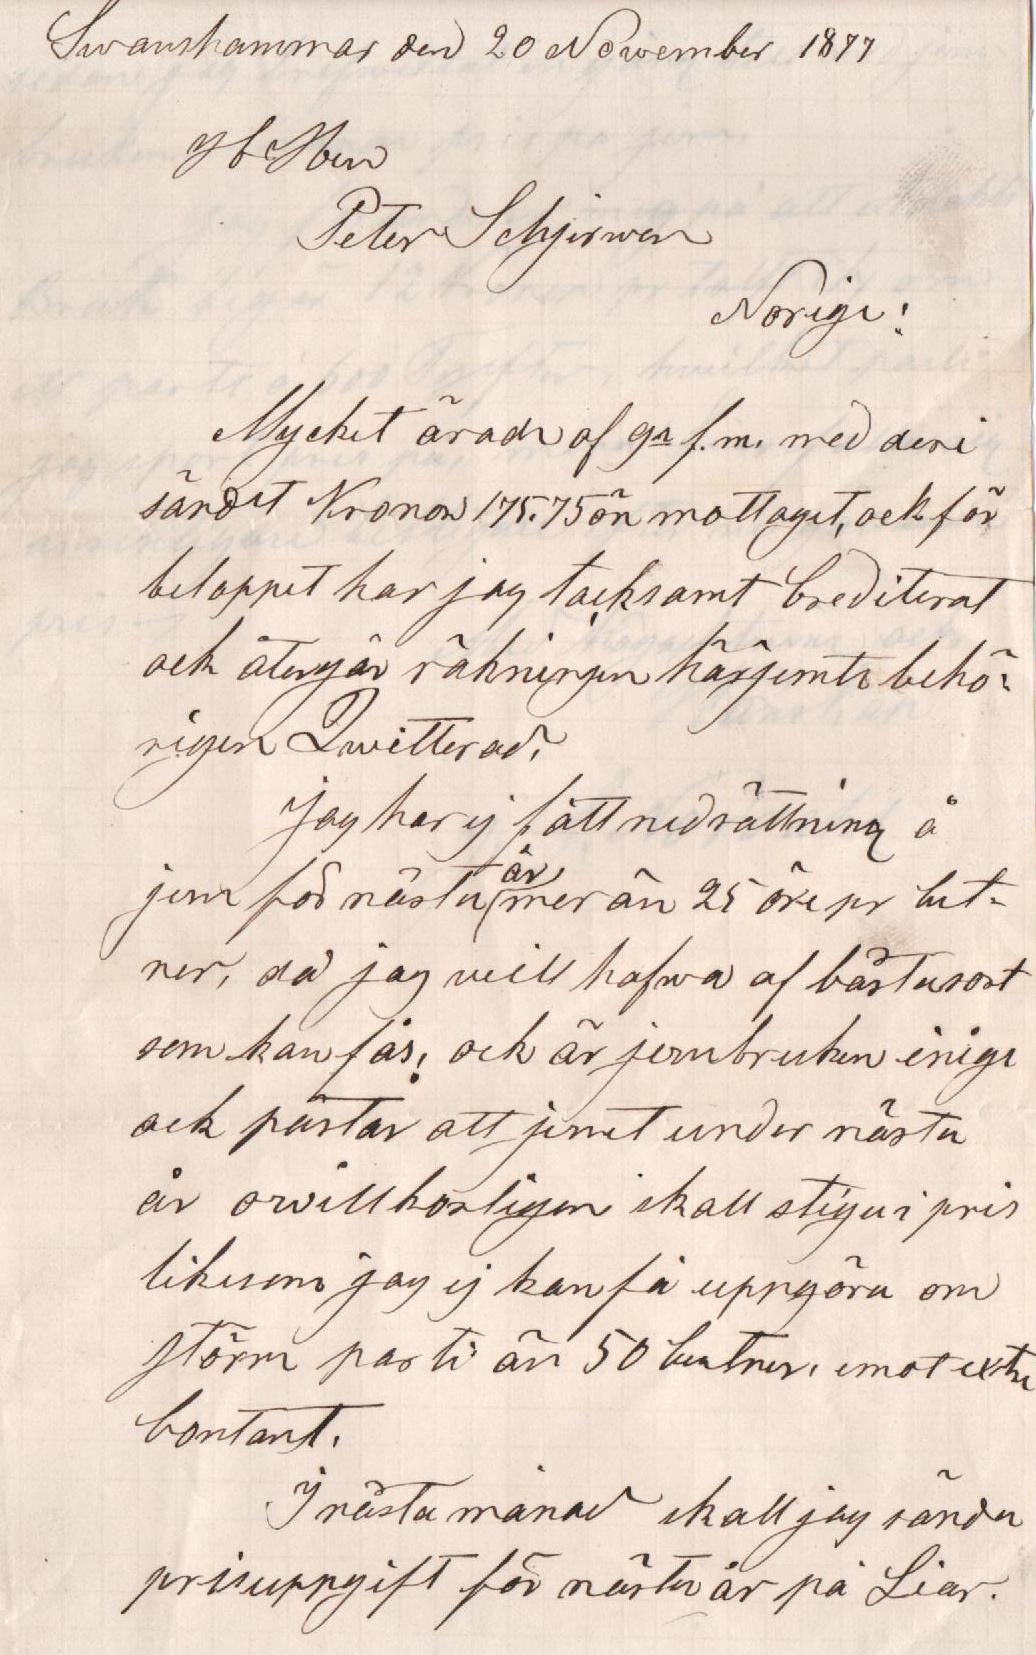 Swanshammar den 20 November 1877
Hb Hen
Peter Schjerwen
Norige!
Mycket ärade af 9de f.m. med deri
sändt Kronor 175.75 ön mottaget, ock för
beloppet har jag tacksamt Crediterat
ock återgår räkningen härjemte behö-
rigen Qwitterad.
Jag har ej fått nedsättning å
jern för nästa år mer än 25 öre pr Cet-
ner, då jag veill hafwa af bästa sort
som kan fås; ock är jernbruken enige
ock påstår att jernet under nästa
år owillkorligen skall stiga i pris
likesom jag ej kan få uppgöra om
större parti än 50 Centner, emot extra
Contant.
I nästa månad skall jag sända
prisuppgift för nästa år på Liar.